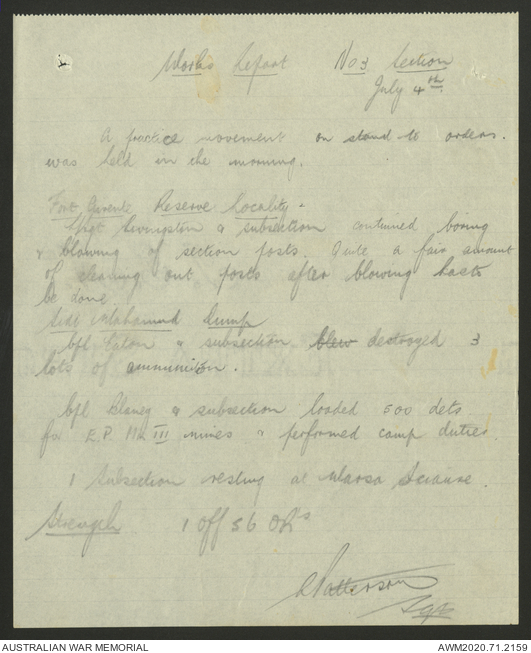 Works Report No 3 Section
July 4th.
A practice movement on stand to orders.
was held in the morning.
Reserve Locality -
Sgt Livingston & subsection continued boring
& blowing of section posts. Quite a fair amount
of cleaning out posts after blowing has to
be done
Sidi Mahmund Dump
Cpl Eaton & subsection blew destroyed 3
lots of ammunition.
Cpl Blaney & subsection loaded 500 dets
for E.P. Mk III mines & performed camp duties.
1 Subsection resting at Marsa
Strength 1 Off 56 OR's
Patterson
Sgt
AUSTRALIAN WAR MEMORIAL
AWM2020.71.2159